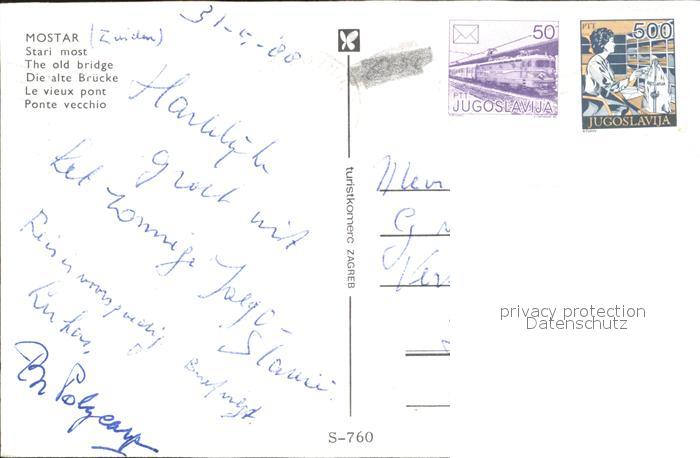 MOSTAR (Zuiden)
Stari most
The old bridge
Die alte Brücke
Le vieux pont
Ponte vecchio
31-5-'88
Hartelijke
groet uit
het zonnige Joego-
Slavië.
Reis is voorspoedig
Br Polycarp
turistkomerc ZAGREB
PTT
50
JUGOSLAVIJA
PTT
500
JUGOSLAVIJA
Mevr
G
Ver
privacy protection
Datenschutz
S-760